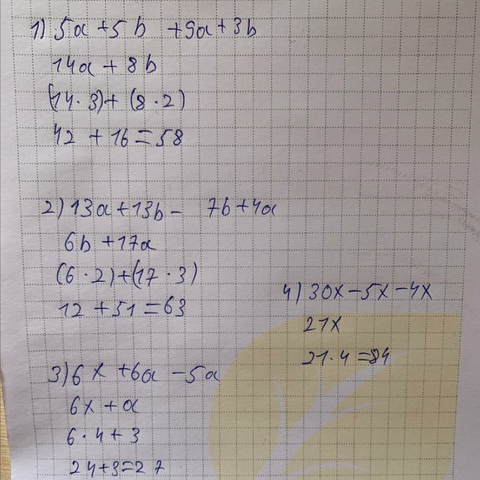 1) 5a + 5b + 9a + 3b
14a + 8b
(14 · 3) + (8 · 2)
42 + 16 = 58
2) 13a + 13b - 7b + 4a
6b + 17a
(6 · 2) + (17 · 3)
12 + 51 = 63
3) 6x + 6a - 5a
6x + a
6 · 4 + 3
24 + 3 = 27
4) 30x - 5x - 4x
21x
21 · 4 = 84